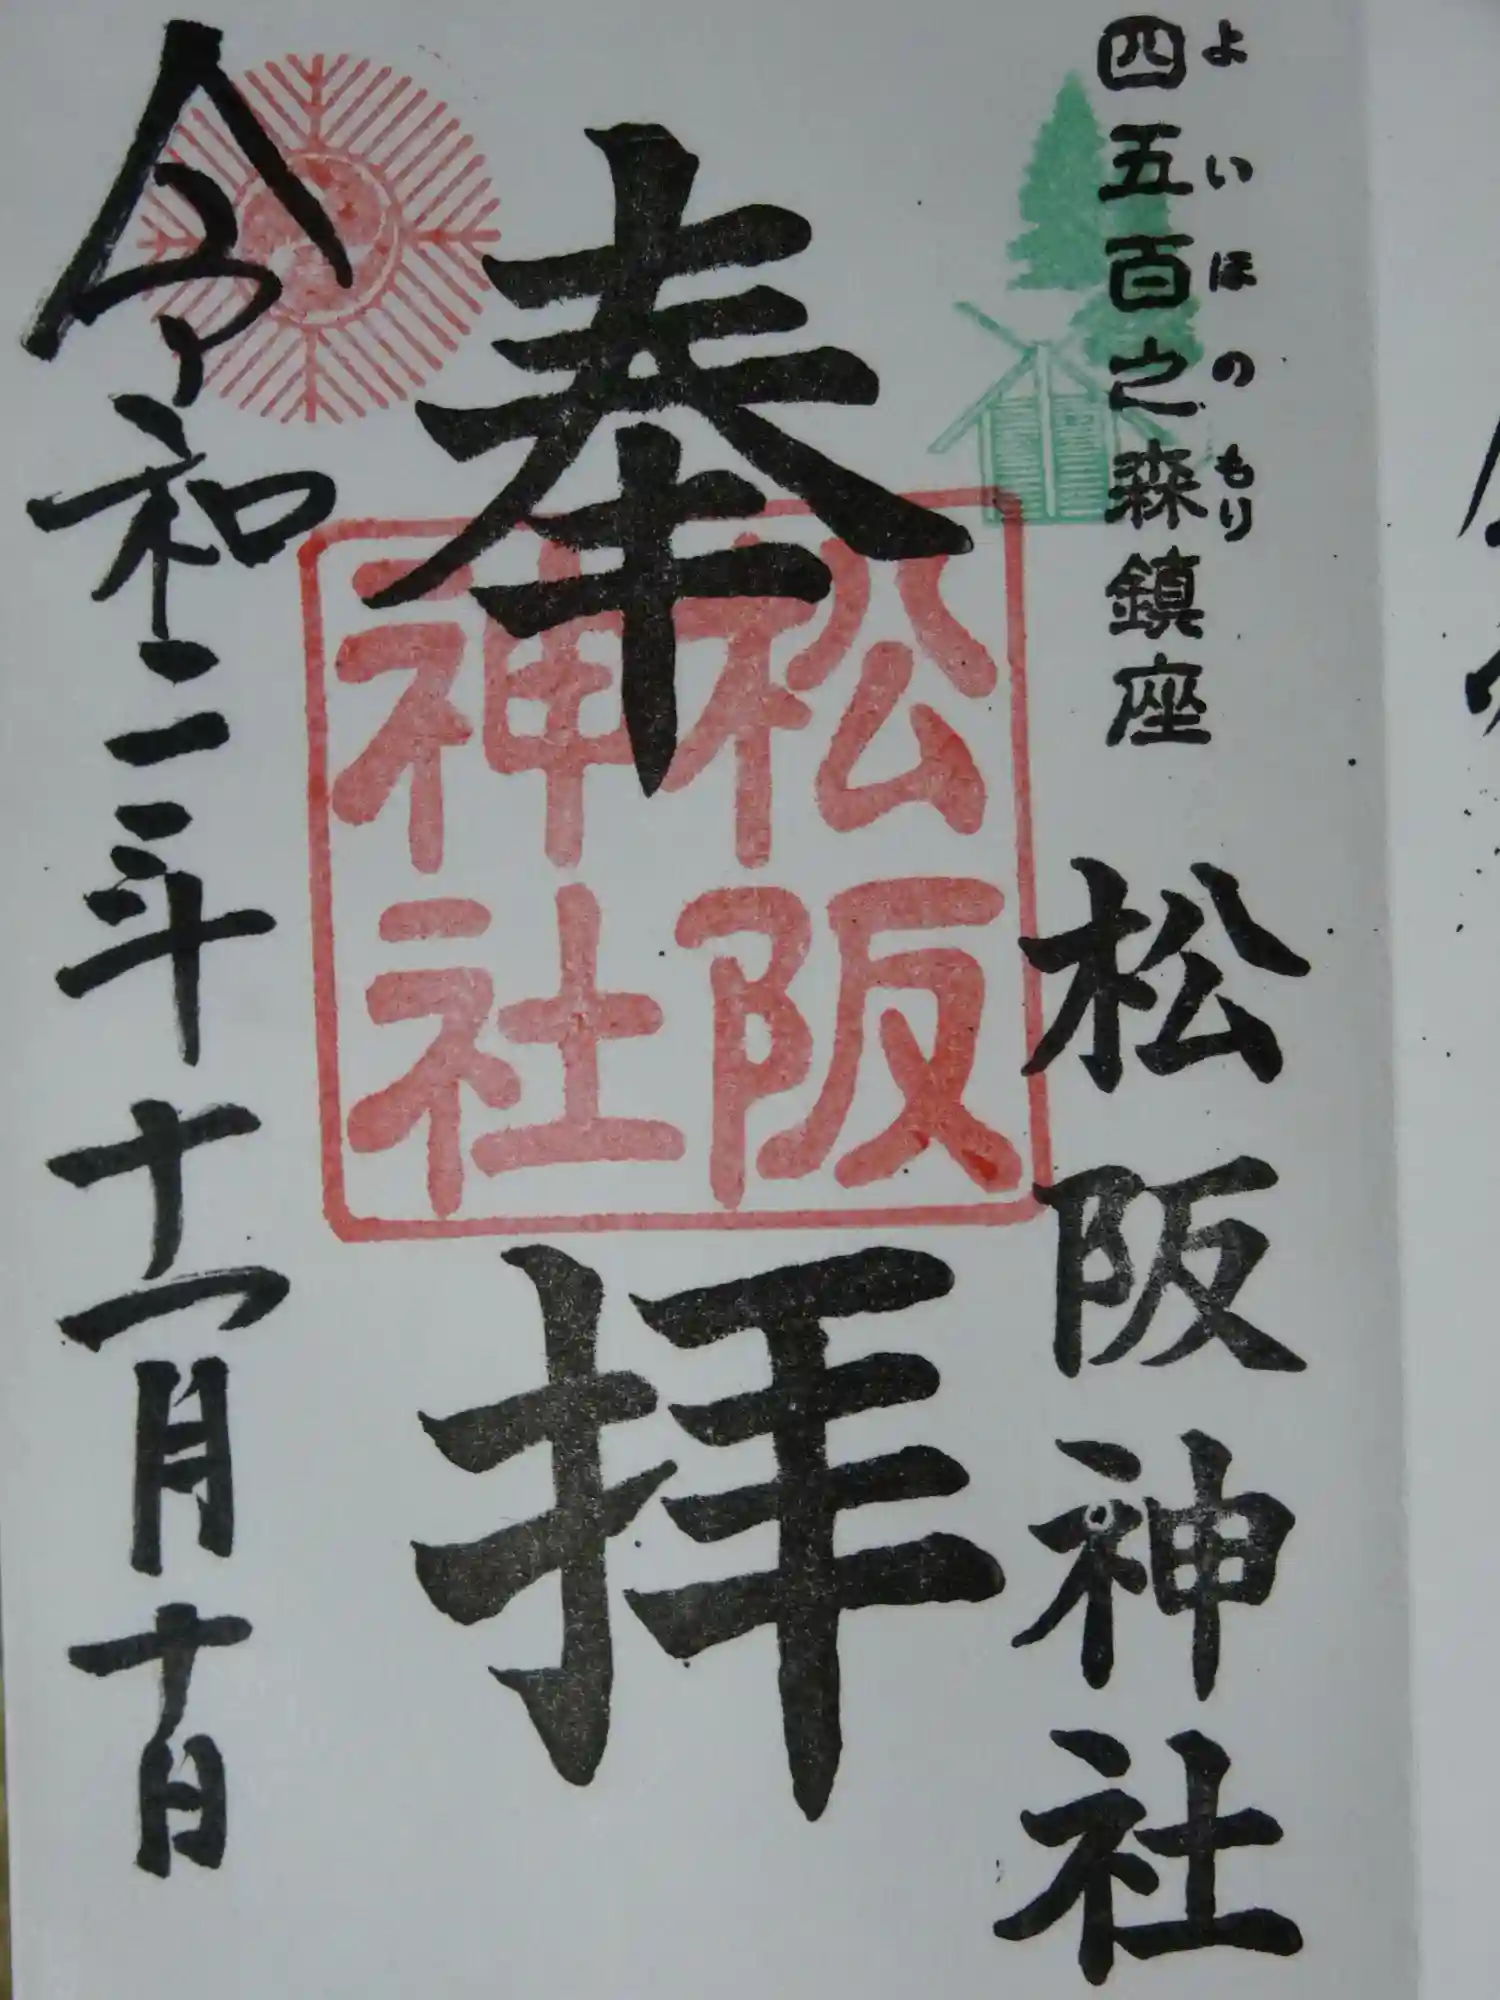 四五百之森鎮座
よいほのもり
松阪神社
奉拝
松阪
神社
令和二年十一月十日